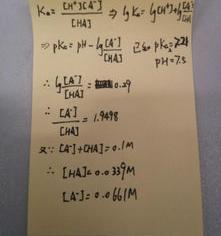 Ka = [H⁺][A⁻]/[HA] ⇒ lg Ka = lg[H⁺] + lg [A⁻]/[HA]
⇒ pKa = pH - lg [A⁻]/[HA] 已知 pKa = 7.21
pH = 7.5
∴ lg [A⁻]/[HA] = 0.29
∴ [A⁻]/[HA] = 1.9498
又∵ [A⁻]+[HA] = 0.1M
∴ [HA] = 0.0339M
[A⁻] = 0.0661M